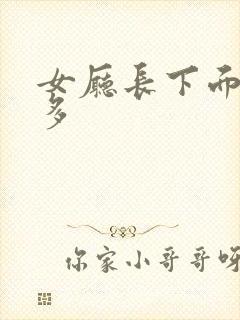 女厅长下面
多
你家小哥哥呀